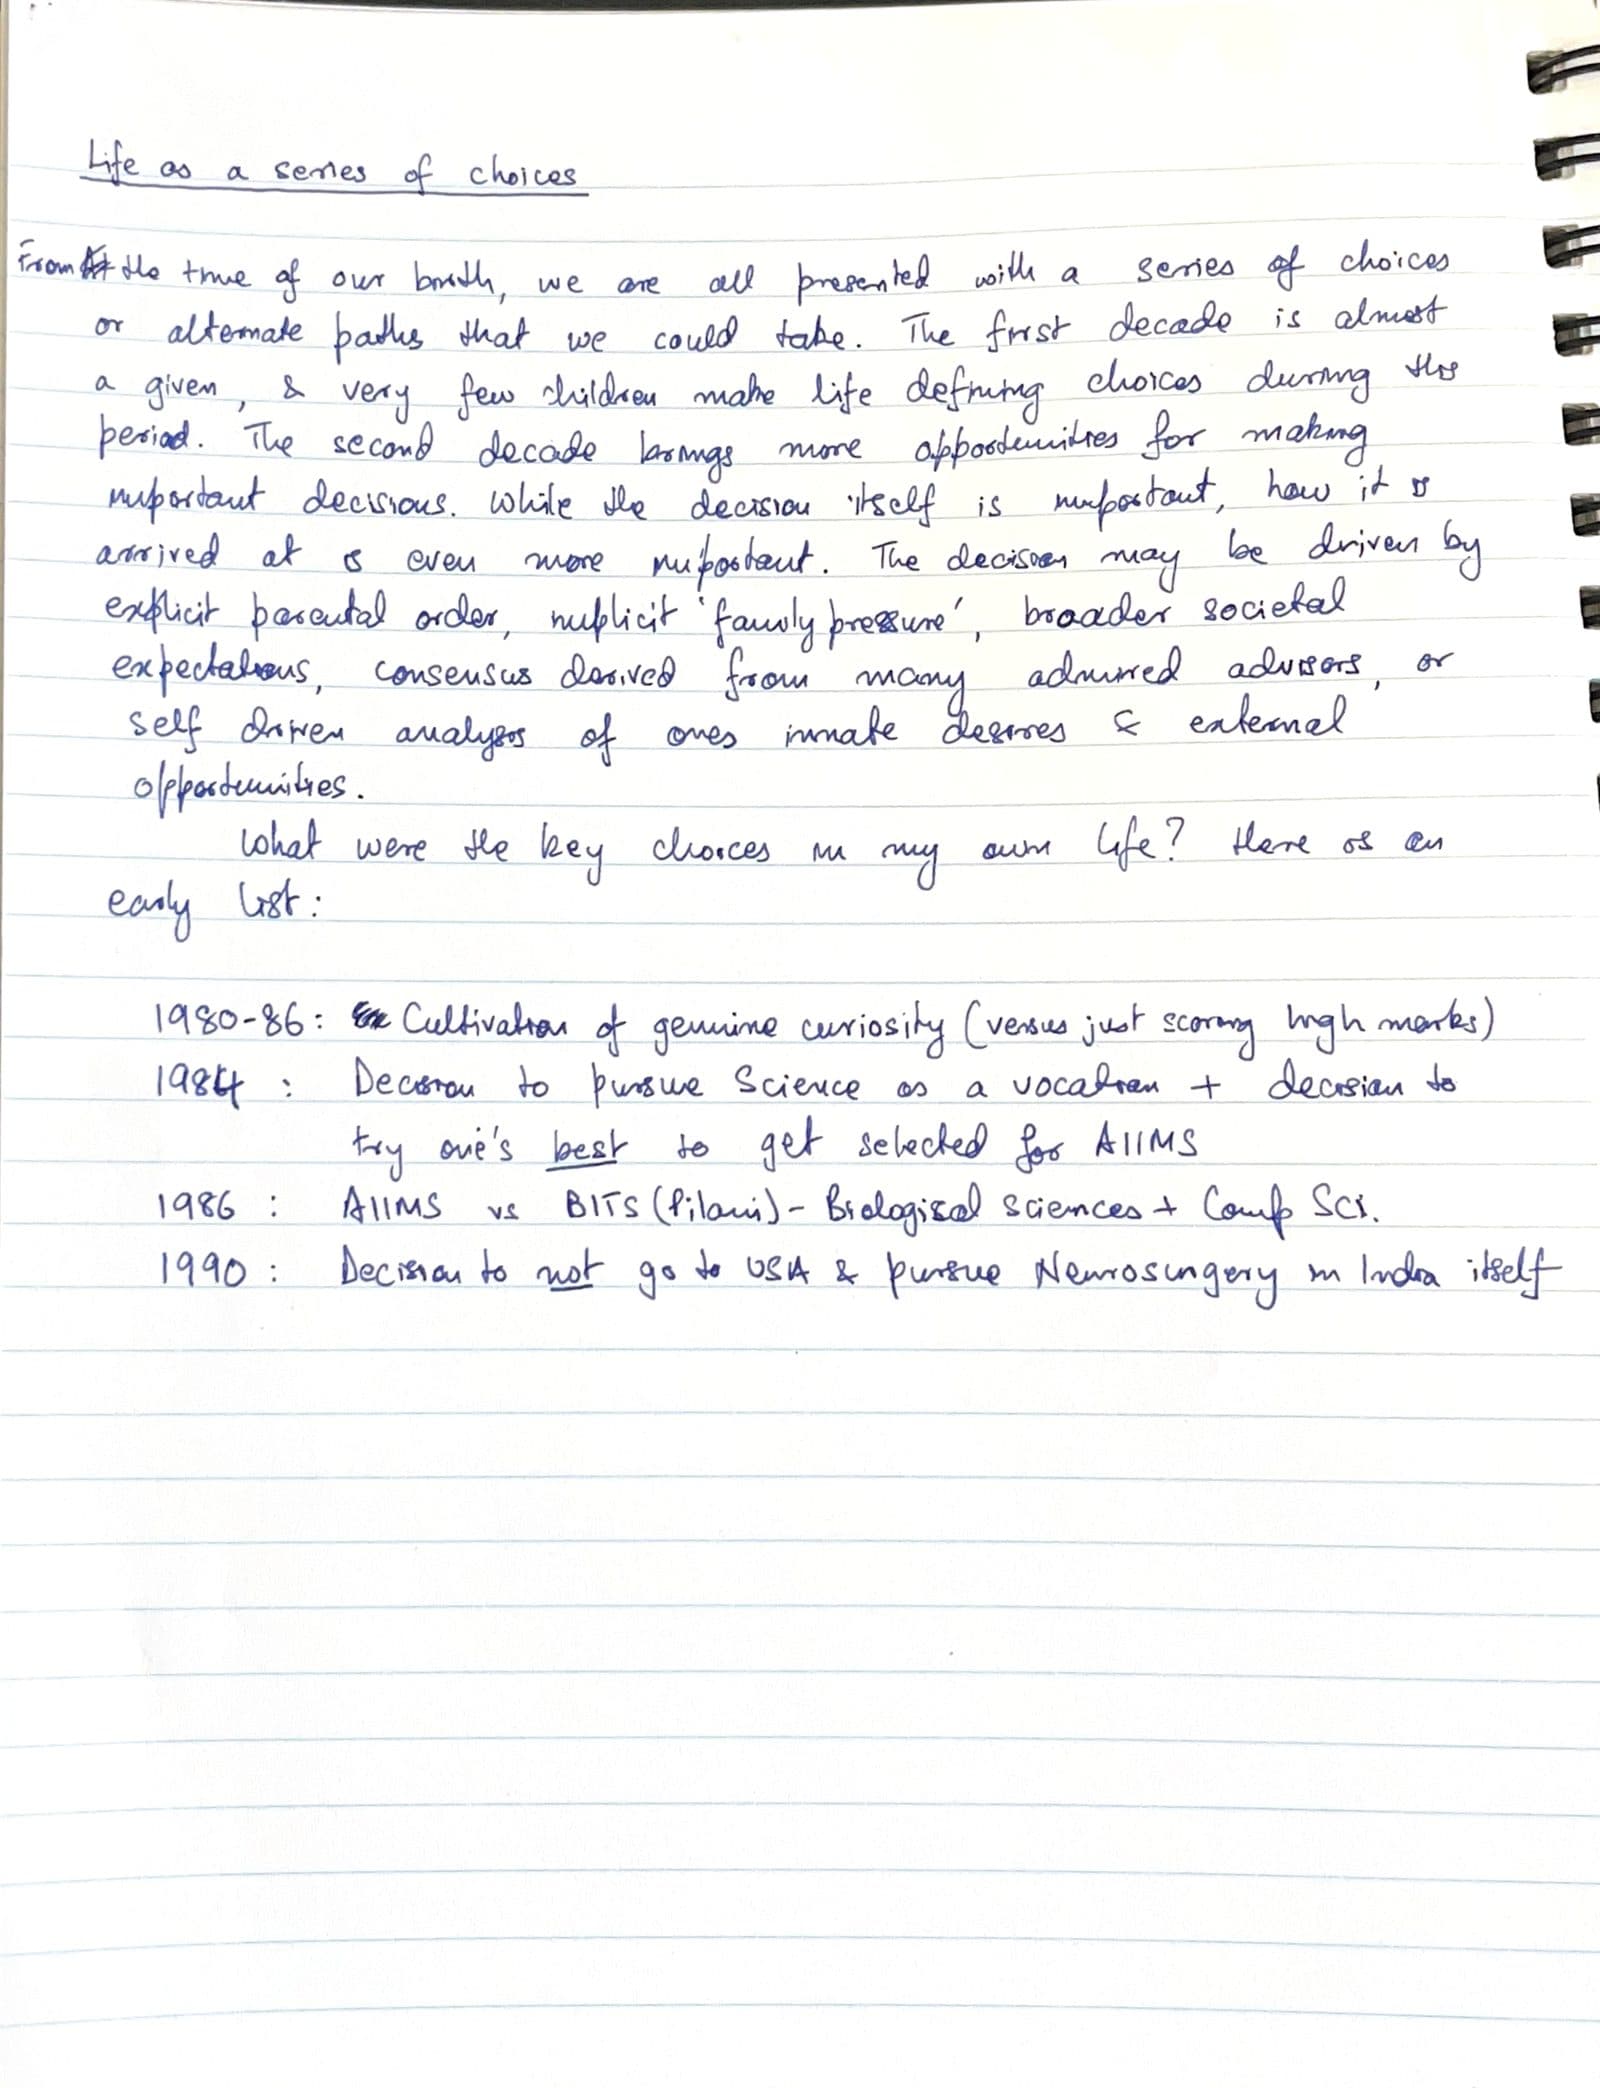 Life as a series of choices
From the time of our birth, we are all presented with a series of choices
or alternate paths that we could take. The first decade is almost
a given, & very few children make life defining choices during this
period. The second decade brings more opportunities for making
important decisions. While the decision itself is important, how it is
arrived at is even more important. The decision may be driven by
explicit parental order, implicit 'family pressure', broader societal
expectations, consensus derived from many admired advisors, or
self driven analysis of ones innate desires & external
opportunities.
What were the key choices in my own life? Here is an
early list:
1980-86: Cultivation of genuine curiosity (versus just scoring high marks)
1984 : Decision to pursue Science as a vocation + decision to
try one's best to get selected for AIIMS
1986 : AIIMS vs BITS (Pilani) - Biological Sciences + Comp Sci.
1990 : Decision to not go to USA & pursue Neurosurgery in India itself